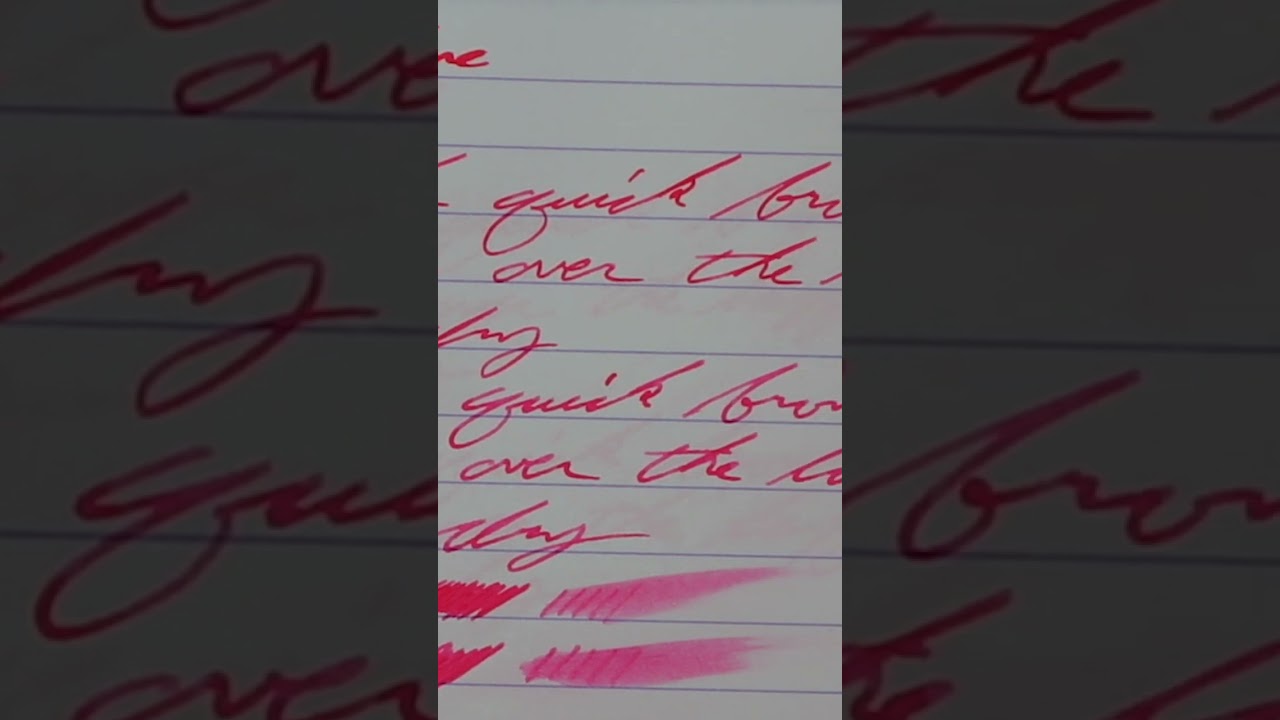 quick bro
over the
dry
quick brow
over the la
dry